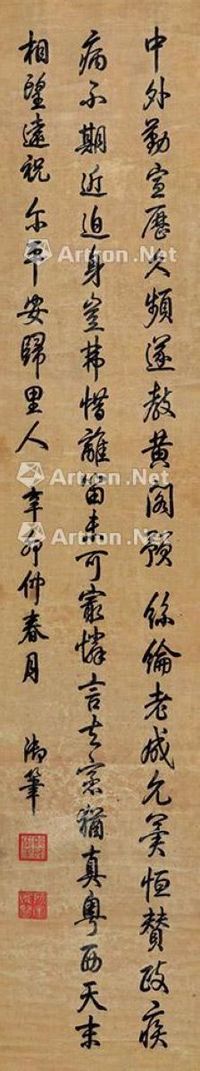 中外勤宣歷久頻遂教黃閣預絲綸老成允冀恒贊政疾
病不期近迫身豈惜離留未可㝡憐言去猶真粵西天末
相望遠祝尔平安歸里人 辛卯仲春月 御筆
Artron.Net
Artron.Net
Artron.Net
Artron.Net